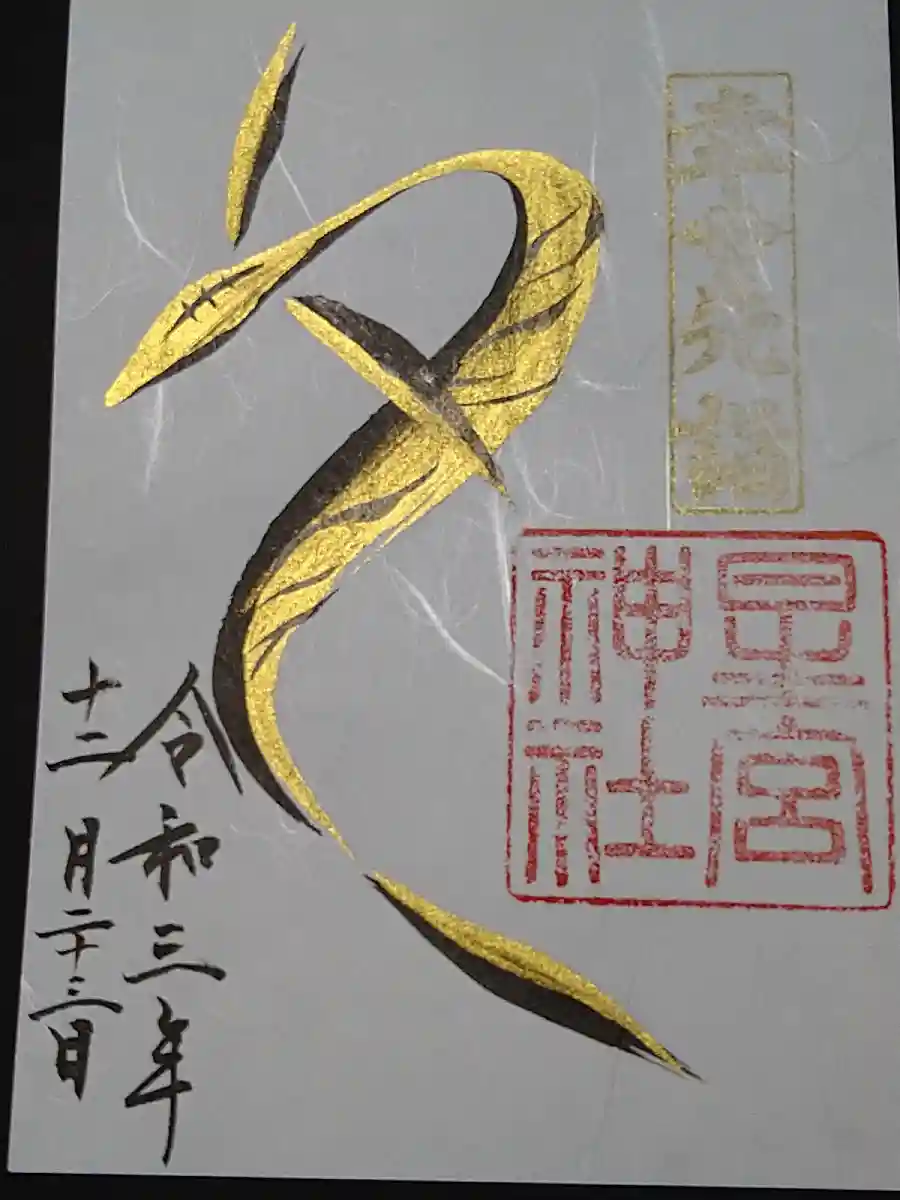 星宮
神社
令和三年
十二月二十三日